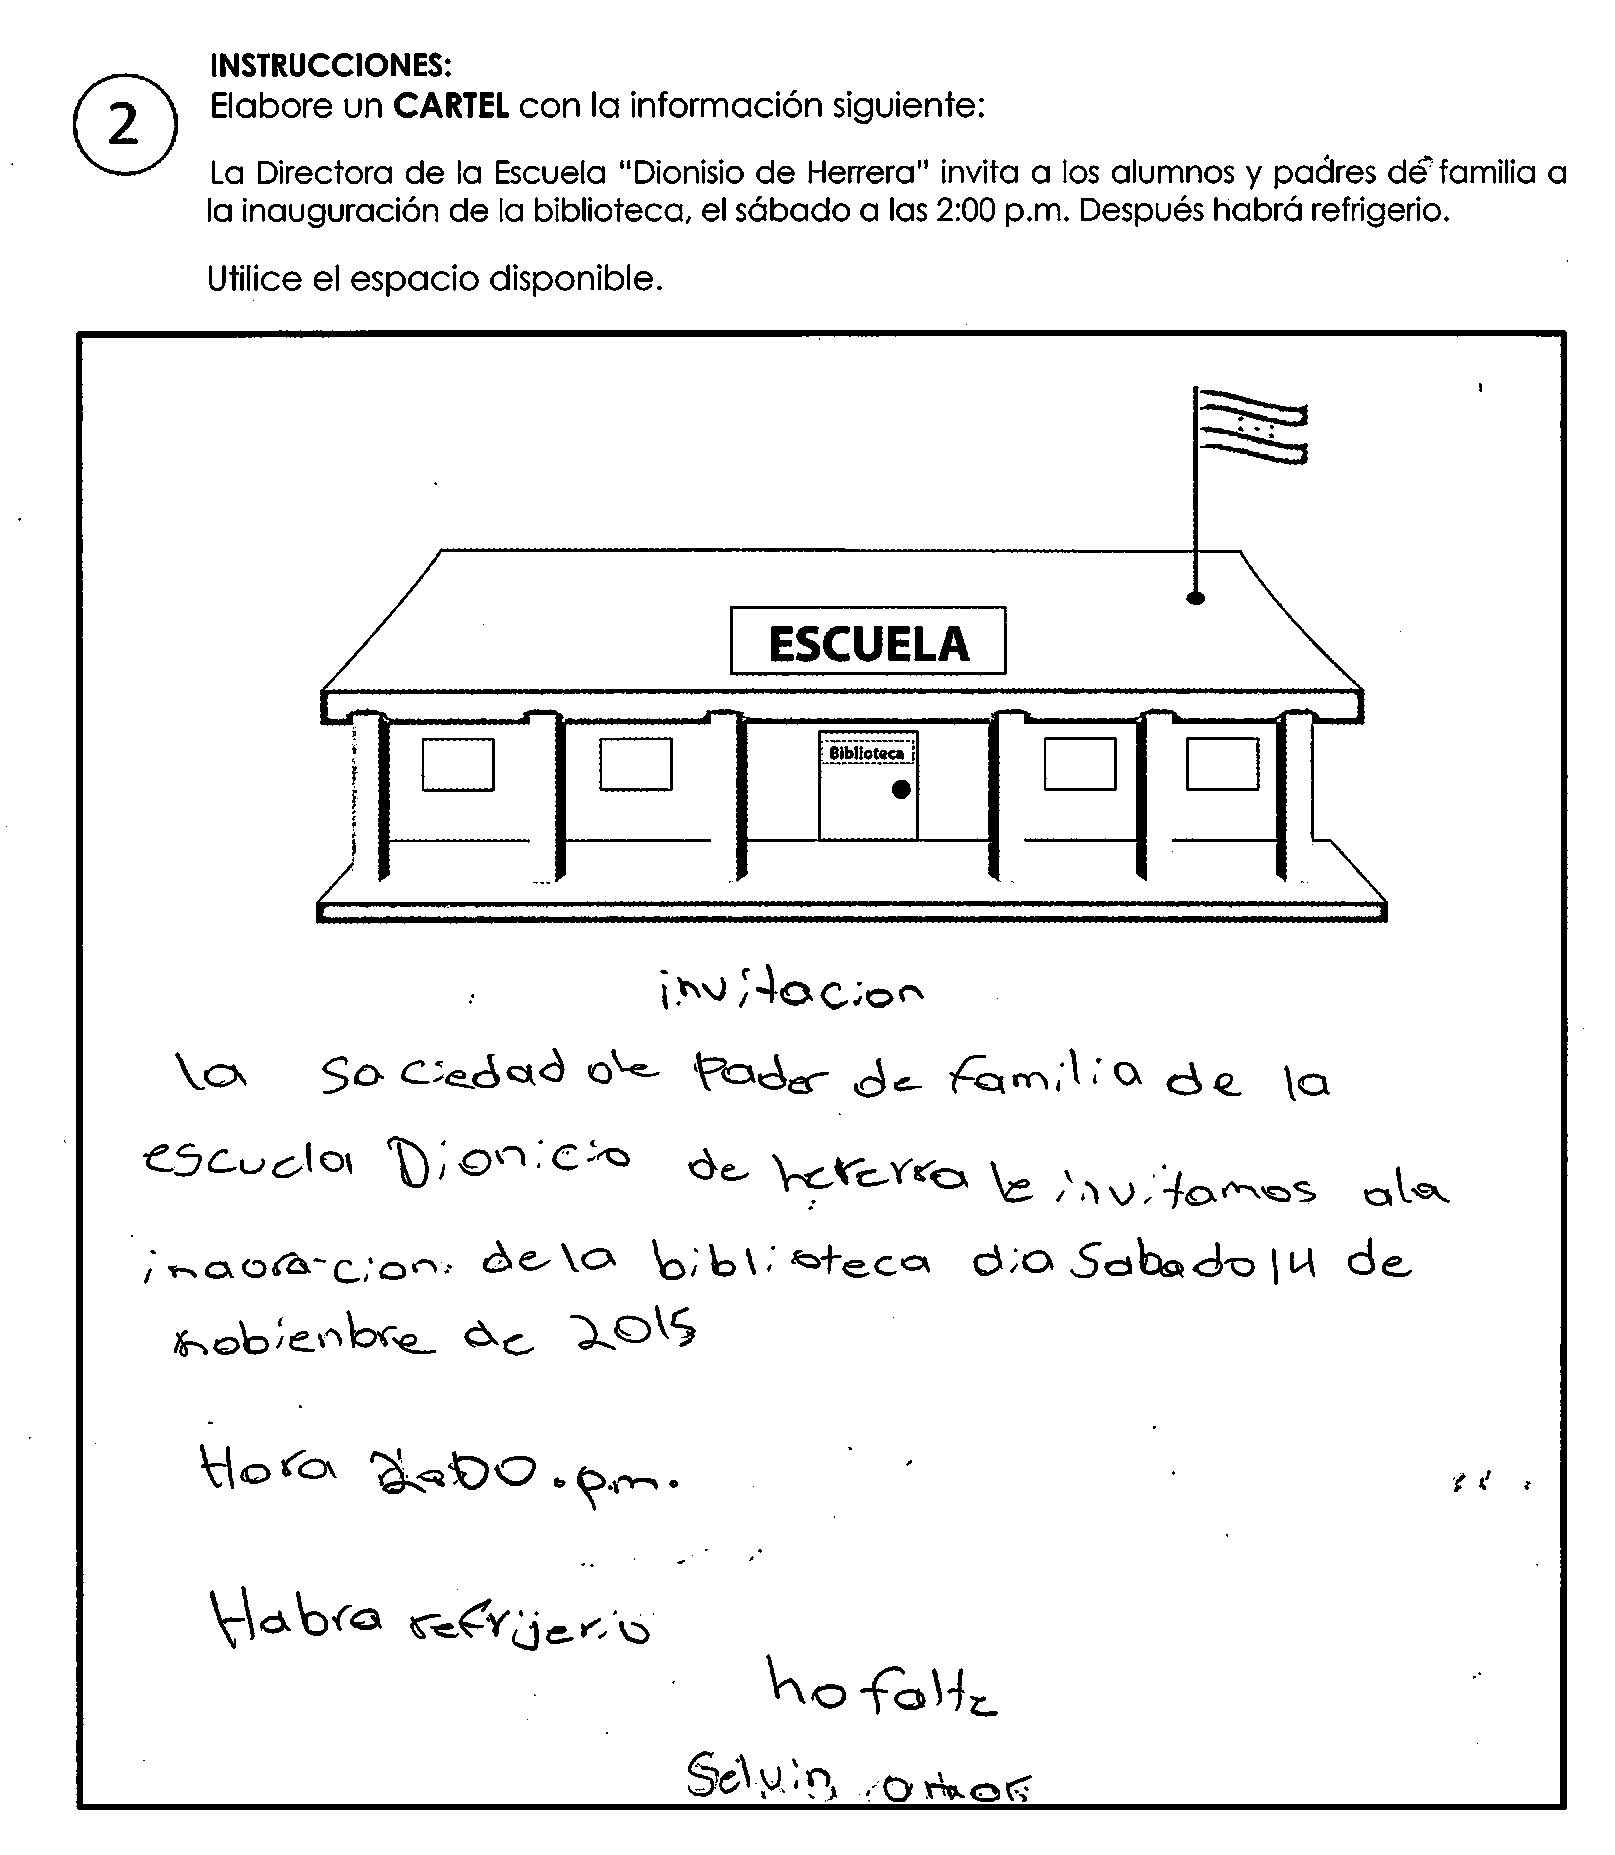 INSTRUCCIONES:
2
Elabore un CARTEL con la información siguiente:
La Directora de la Escuela "Dionisio de Herrera" invita a los alumnos y padres de familia a
la inauguración de la biblioteca, el sábado a las 2:00 p.m. Después habrá refrigerio.
Utilice el espacio disponible.
ESCUELA
Biblioteca
invitacion
la sociedad de Pader de familia de la
escuela Dionicio de hererra le invitamos ala
de la biblioteca dia Sabado 14 de
nobienbre de 2015
Hora 2:00.p.m.
Habra refrijerio
no falte
Selvin omar